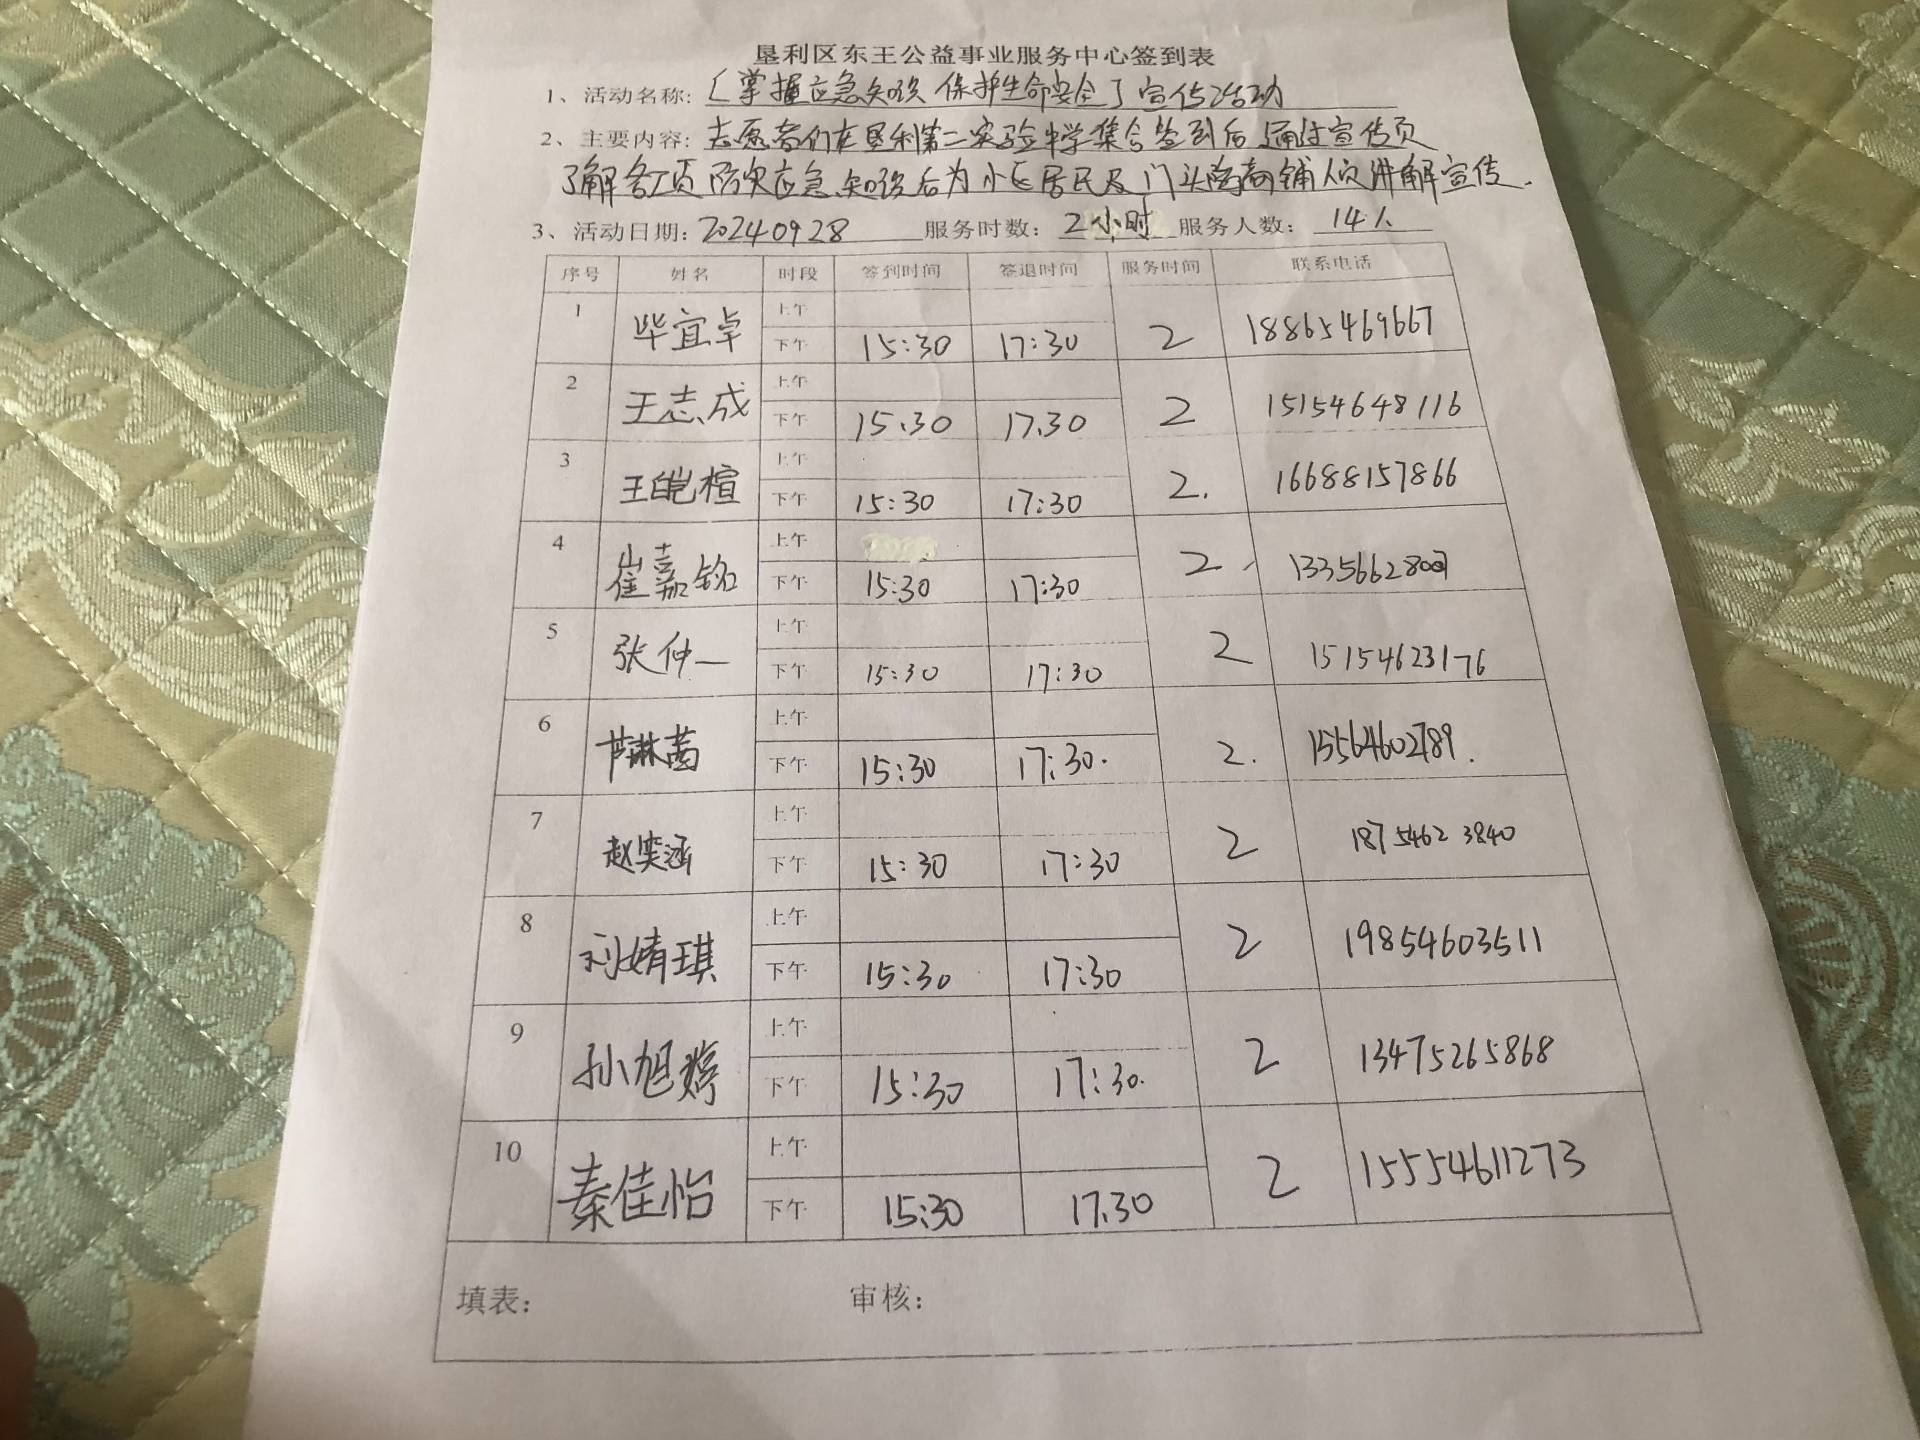 垦利区东王公益事业服务中心签到表
1、活动名称: 「掌握应急知识 保护生命安全」宣传活动
2、主要内容: 志愿者们在垦利第二实验中学集合签到后通过宣传页
了解各项防灾应急知识后为小区居民及门头商铺人员讲解宣传.
3、活动日期: 20240928 服务时数: 2小时 服务人数: 14人
序号 姓名 时段 签到时间 签退时间 服务时间 联系电话
1 毕宜卓 上午
下午 15:30 17:30 2 18865469667
2 王志成 上午
下午 15.30 17.30 2 15154648116
3 王皑楦 上午
下午 15:30 17:30 2. 16688157866
4 崔嘉铭 上午
下午 15:30 17:30 2
5 张仲一 上午
下午 15:30 17:30 2 15154623176
6 芦琳茜 上午
下午 15:30 17:30. 2. 15564602789.
7 赵奕涵 上午
下午 15:30 17:30 2 18754623840
8 刘婧琪 上午
下午 15:30 17:30 2 19854603511
9 孙旭婷 上午
下午 15:30 17:30. 2 13475265868
10 秦佳怡 上午
下午 15:30 17.30 2 15554611273
填表: 审核: